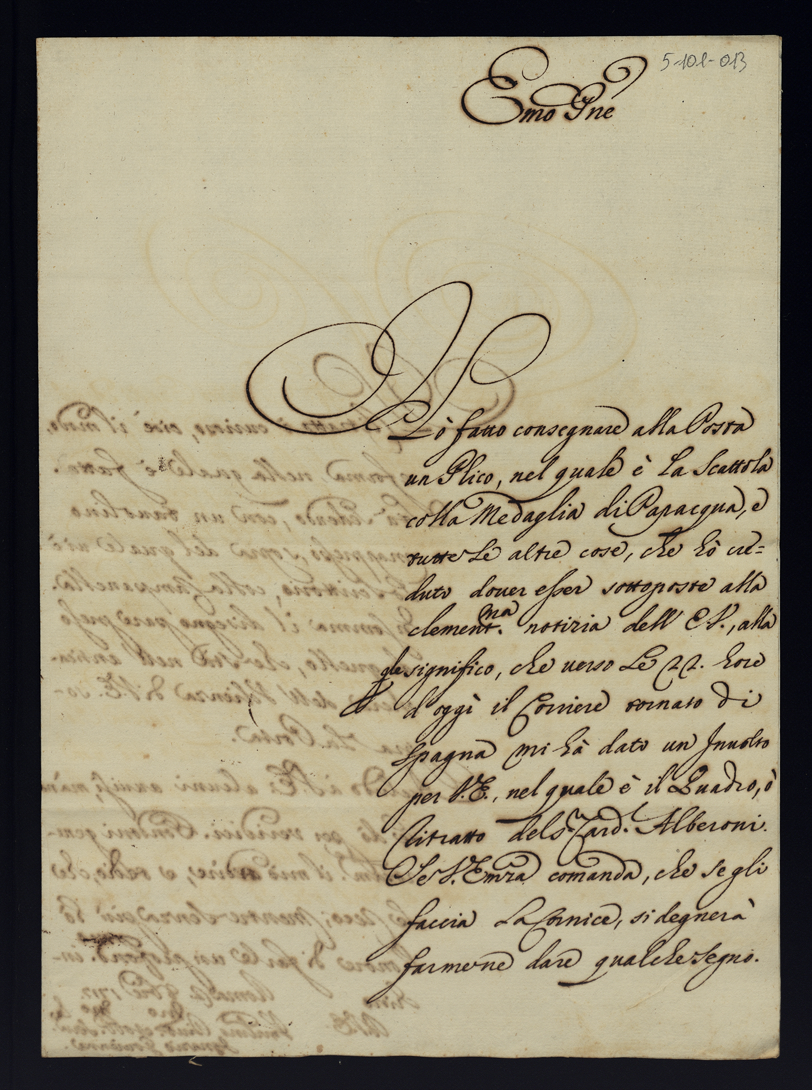 5-101-013
Emo Pne
Hò fatto consegnare alla Posta
un Plico, nel quale è la Scattola
colla Medaglia di Papacqua, e
tutte le altre cose, che hò cre=
duto dover esser sottoposte alla
clementma. notizia dell' E.V., alla
qle significo, che verso le 22. hore
d'oggi il Corriere tornato di
Spagna mi hà dato un Involto
per V.E., nel quale è il Quadro, ò
Ritratto del Sr. Card.l Alberoni.
Se V. Emza comanda, che se gli
faccia la Cornice, si degnerà
farmene dare qualche segno.